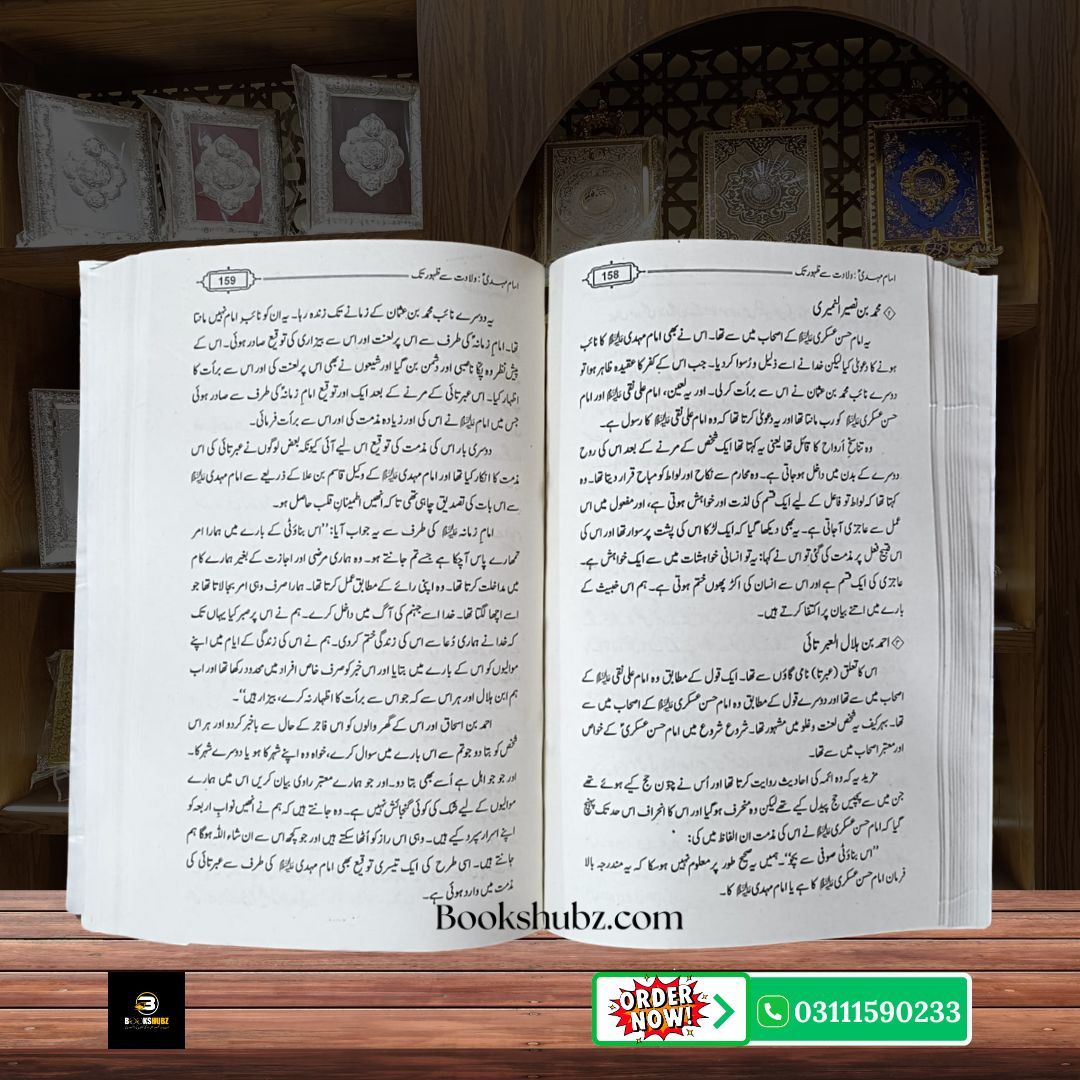 158
امام مہدیؑ: ولادت سے ظہور تک
محمد بن نصیر النمیری
یہ امام حسن عسکری علیہ السلام کے اصحاب میں سے تھا۔ اس نے بھی امام مہدی علیہ السلام کا نائب
ہونے کا دعویٰ کیا لیکن خدا نے اسے ذلیل و رُسوا کر دیا۔ جب اس کے کفر کا عقیدہ ظاہر ہوا تو
دوسرے نائب محمد بن عثمان نے اس سے برأت کر لی۔ اور یہ لعین، امام علی نقی علیہ السلام اور امام
حسن عسکری علیہ السلام کو رب مانتا تھا اور یہ دعویٰ کرتا تھا کہ وہ امام علی نقی علیہ السلام کا رسول ہے۔
وہ تناسخِ اَرواح کا قائل تھا یعنی یہ کہتا تھا ایک شخص کے مرنے کے بعد اس کی روح
دوسرے کے بدن میں داخل ہو جاتی ہے۔ وہ محارم سے نکاح اور لواط کو مباح قرار دیتا تھا۔ وہ
کہتا تھا کہ لواط تو فاعل کے لیے ایک قسم کی لذت اور خواہش ہوتی ہے، اور مفعول میں اس
عمل سے عاجزی آ جاتی ہے۔ یہ بھی دیکھا گیا کہ ایک لڑکا اس کی پشت پر سوار تھا اور اس کی
اس قبیح فعل پر مذمت کی گئی تو اس نے کہا: یہ تو انسانی خواہشات میں سے ایک خواہش ہے۔
عاجزی کی ایک قسم ہے اور اس سے انسان کی اکڑ پھوں ختم ہوتی ہے۔ ہم اس خبیث کے
بارے میں اتنے بیان پر اکتفا کرتے ہیں۔
احمد بن ہلال العبرتائی
اس کا تعلق (عبرتا) نامی گاؤں سے تھا۔ ایک قول کے مطابق وہ امام علی نقی علیہ السلام کے
اصحاب میں سے تھا اور دوسرے قول کے مطابق وہ امام حسن عسکری علیہ السلام کے اصحاب میں سے
تھا۔ بہرکیف یہ شخص لعنت و غلو میں مشہور تھا۔ شروع شروع میں امام حسن عسکریؑ کے خواص
اور معتبر اصحاب میں سے تھا۔
مزید یہ کہ وہ ائمہ کی احادیث روایت کرتا تھا اور اُس نے چون حج کیے ہوئے تھے
جن میں سے پچیس حج پیدل کیے تھے لیکن وہ منحرف ہو گیا اور اس کا انحراف اس حد تک پہنچ
گیا کہ امام حسن عسکری علیہ السلام نے اس کی مذمت ان الفاظ میں کی:
”اس بناؤٹی صوفی سے بچو“۔ ہمیں یہ صحیح طور پر معلوم نہیں ہو سکا کہ یہ مندرجہ بالا
فرمان امام حسن عسکری علیہ السلام کا ہے یا امام مہدی علیہ السلام کا۔
159
امام مہدیؑ: ولادت سے ظہور تک
یہ دوسرے نائب محمد بن عثمان کے زمانے تک زندہ رہا۔ یہ ان کو نائبِ امام نہیں مانتا
تھا۔ امام زمانہؑ کی طرف سے اس پر لعنت اور اس سے بیزاری کی توقیع صادر ہوئی۔ اس کے
پیش نظر وہ پکا ناصبی اور دشمن بن گیا اور شیعوں نے بھی اس پر لعنت کی اور اس سے برأت کا
اظہار کیا۔ اس عبرتائی کے مرنے کے بعد ایک اور توقیع امام زمانہؑ کی طرف سے صادر ہوئی
جس میں امام علیہ السلام نے اس کی اور زیادہ مذمت کی اور اس سے برأت فرمائی۔
دوسری بار اس کی مذمت کی توقیع اس لیے آئی کیونکہ بعض لوگوں نے عبرتائی کی اس
مذمت کا انکار کیا تھا اور امام مہدی علیہ السلام کے وکیل قاسم بن علا کے ذریعے سے امام مہدی علیہ السلام
سے اس بات کی تصدیق چاہی تھی تاکہ انھیں اطمینانِ قلب حاصل ہو۔
امام زمانہ علیہ السلام کی طرف سے یہ جواب آیا: ”اس بناؤٹی کے بارے میں ہمارا امر
تمھارے پاس آ چکا ہے جسے تم جانتے ہو۔ وہ ہماری مرضی اور اجازت کے بغیر ہمارے کام
میں مداخلت کرتا تھا۔ وہ اپنی رائے کے مطابق عمل کرتا تھا۔ ہمارا صرف وہی امر بجا لاتا تھا جو
اسے اچھا لگتا تھا۔ خدا اسے جہنم کی آگ میں داخل کرے۔ ہم نے اس پر صبر کیا یہاں تک
کہ خدا نے ہماری دُعا سے اس کی زندگی ختم کر دی۔ ہم نے اس کی زندگی کے ایام میں اپنے
موالیوں کو اس کے بارے میں بتایا اور اس خبر کو صرف خاص افراد میں محدود رکھا تھا اور اب
ہم ابن ہلال اور ہر اس سے کہ جو اس سے برأت کا اظہار نہ کرے، بیزار ہیں“۔
احمد بن اسحاق اور اس کے گھر والوں کو اس فاجر کے حال سے باخبر کر دو اور ہر اس
شخص کو بتا دو جو تم سے اس بارے میں سوال کرے، خواہ وہ اپنے شہر کا ہو یا دوسرے شہر کا۔
اور جو جو اہل ہے اُسے بھی بتا دو۔ اور جو ہمارے معتبر راوی بیان کریں اس میں ہمارے
موالیوں کے لیے شک کی کوئی گنجائش نہیں ہے۔ وہ جانتے ہیں کہ ہم نے انھیں نوابِ اربعہ کو
اپنے اسرار سپرد کیے ہیں۔ وہی اس راز کو اُٹھا سکتے ہیں اور جو کچھ اس سے ان شاء اللہ ہوگا ہم
جانتے ہیں۔ اسی طرح کی ایک تیسری توقیع بھی امام مہدی علیہ السلام کی طرف سے عبرتائی کی
مذمت میں وارد ہوئی ہے۔
Bookshubz.com
BOOKSHUBZ
ORDER NOW!
03111590233